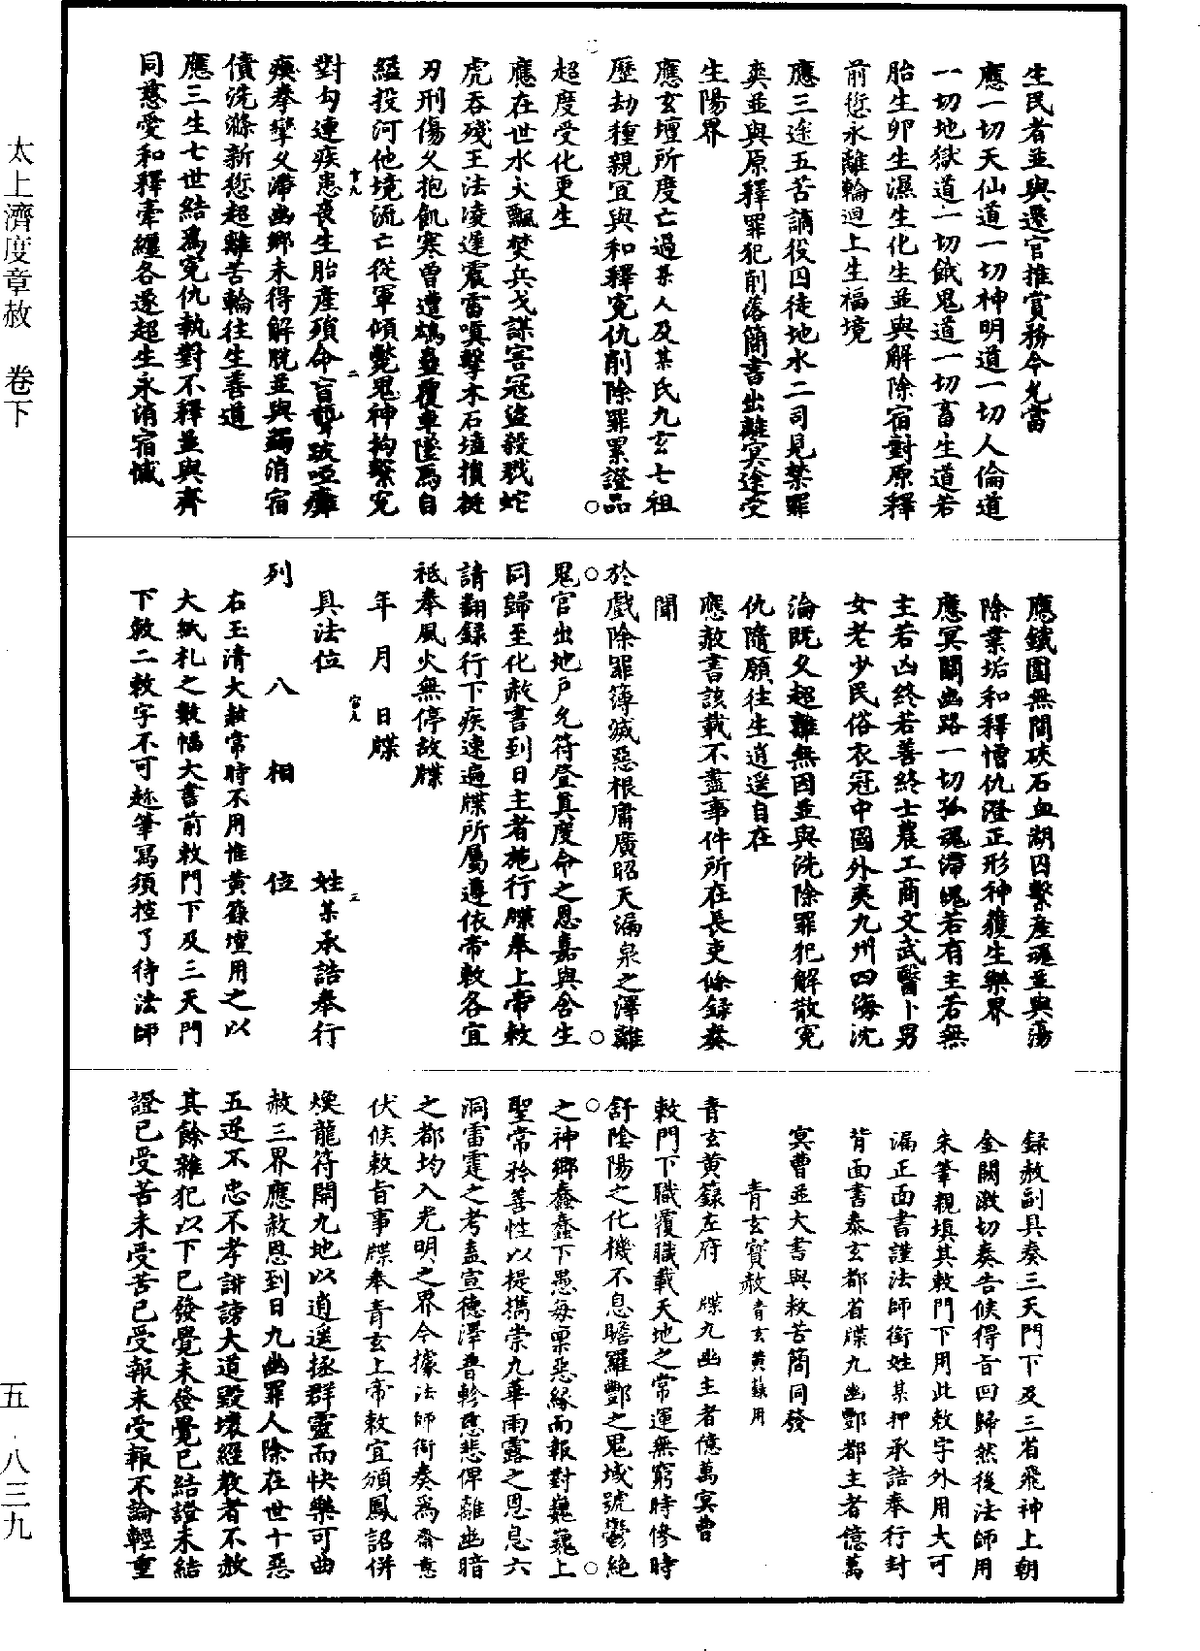 太上濟度章赦　卷下
五・八三九
生民者並與遷官推賞務令允當
應一切天仙道一切神明道一切人倫道
一切地獄道一切餓鬼道一切畜生道若
胎生卵生濕生化生並與解除宿對原釋
前愆永離輪迴上生福境
應三途五苦謫役囚徒地水二司見禁罪
爽並與原釋罪犯削落簡書出離冥途受
生陽界
應玄壇所度亡過某人及某氏九玄七祖
歷劫種親宜與和釋冤仇削除罪累證品
超度受化更生
應在世水火飄焚兵戈謀害冠盜殺戮蛇
虎吞殘王法凌遲震雷嗔擊木石壚損挺
刃刑傷久抱飢寒曾遭蠱覆車墜馬自
縊投河他境流亡從軍傾斃鬼神拘繫冤
對勾連疾患喪生胎產殞命盲聾跛啞癱
瘓拳攣久滯幽鄉未得解脫並與蠲消宿
債洗滌新愆超離苦輪往生善道
應三生七世結為冤仇執對不釋並與齊
同慈愛和釋牽纏各遂超生永消宿憾
應鐵圍無間硤石血湖囚繫產魂並與蕩
除業垢和釋懵仇澄正形神獲生樂界
應冥關幽路一切孤魂滯魄若有主若無
主若凶終若善終士農工商文武醫卜男
女老少民俗衣冠中國外夷九州四海沈
淪既久超離無因並與洗除罪犯解散冤
仇隨願往生逍遥自在
應赦書該載不盡事件所在長吏條録奏
聞
於戲除罪簿滅惡根庸廣昭天漏泉之澤離
鬼官出地戶允符登真度命之恩嘉與含生
同歸至化赦書到日主者施行牒奉上帝敕
請翻録行下疾速遍牒所屬遵依帝敕各宜
祗奉風火無停故牒
年　月　日牒
具法位　　姓某承誥奉行
列　八　相　位
右玉清大赦常時不用惟黃籙壇用之以
大紙札之數幅大書前敕門下及三天門
下敕二敕字不可趂筆寫須控了待法師
録赦副具奏三天門下及三省飛神上朝
金闕激切奏告候得旨回歸然後法師用
朱筆親填其敕門下用此敕字外用大可
漏正面書謹法師銜姓某押承誥奉行封
背面書泰玄都省牒九幽酆都主者億萬
冥曹並大書與救苦簡同發
青玄寶赦青玄黃籙用
青玄黃籙左府　牒九幽主者億萬冥曹
敕門下職覆職載天地之常運無窮時修時
舒陰陽之化機不息瞻羅酆之鬼域號鬱絕
之神鄉蠢蠢下愚每稟惡緣而報對巍巍上
聖常矜善性以提攜崇九華雨露之恩息六
洞雷霆之考盍宣德澤普軫慈悲俾離幽暗
之都均入光明之界今據法師銜奏為齋意
伏候敕旨事牒奉青玄上帝敕宜頒鳳詔併
煥龍符開九地以逍遥拯群靈而快樂可曲
赦三界應赦恩到日九幽罪人除在世十惡
五逆不忠不孝誹謗大道毀壞經教者不赦
其餘雜犯以下已發覺未發覺已結證未結
證已受苦未受苦已受報未受報不論輕重